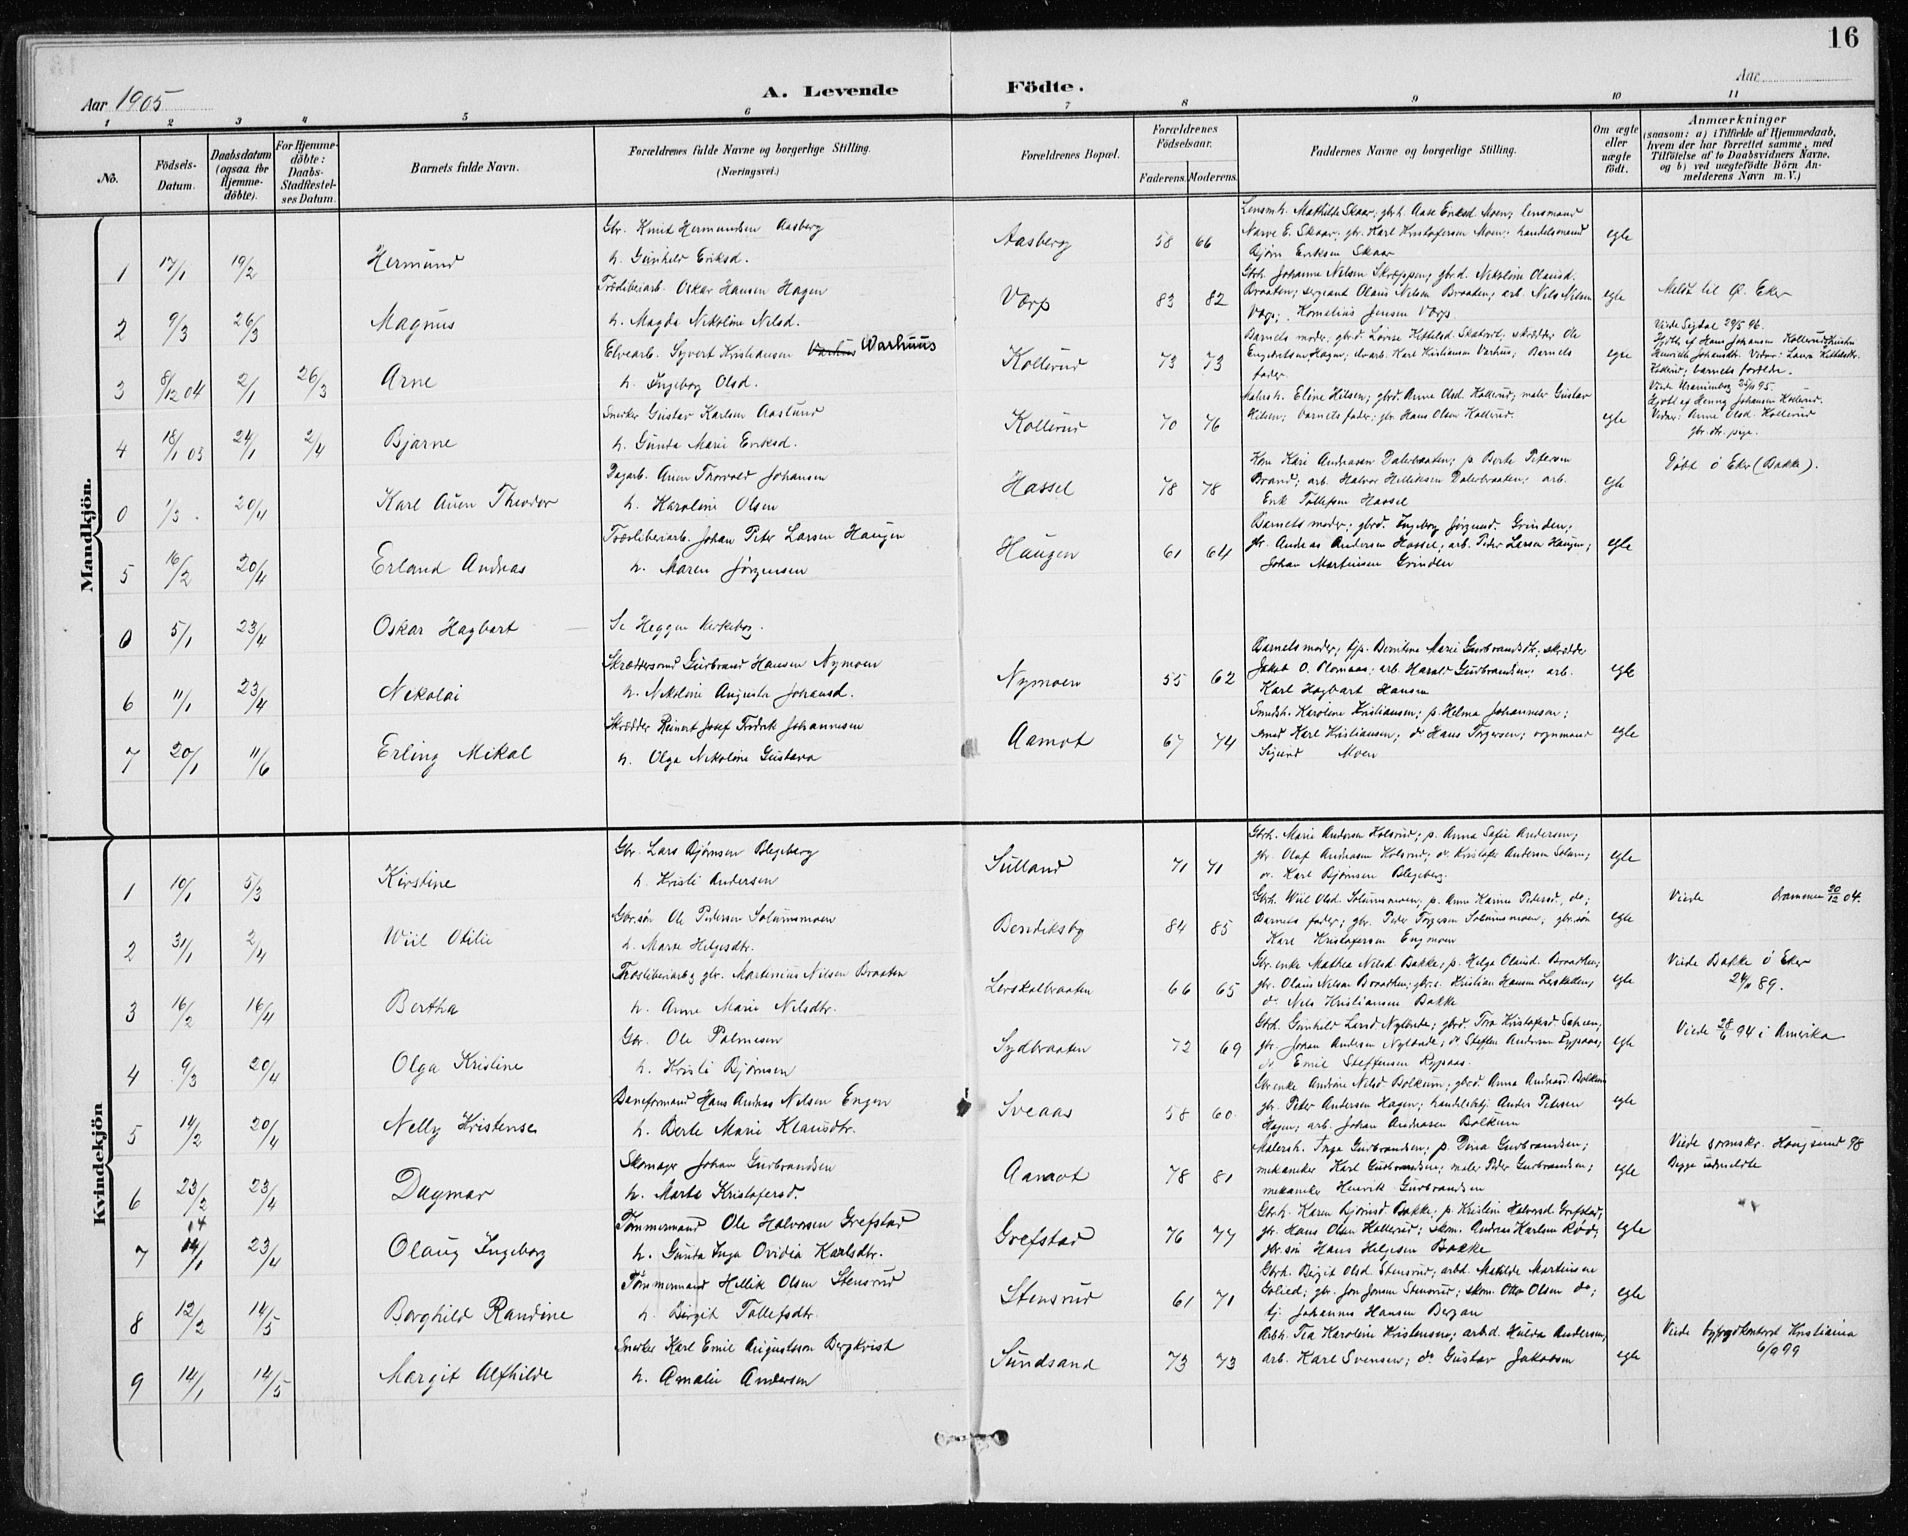 16
Aar 1905
A. Levende Födte.
Aar
1 2 3 4 5 6 7 8 9 10 11
No.
Födsels-Datum.
Daabsdatum (ogsaa for Hjemmedöbte).
For Hjemmedöbte: Daabs-Stadfæstelses Datum.
Barnets fulde Navn.
Forældrenes fulde Navne og borgerlige Stilling. (Næringsvei.)
Forældrenes Bopæl.
Forældrenes Födselsaar.
Faderens. Moderens.
Faddernes Navne og borgerlige Stilling.
Om ægte eller uægte födt.
Anmærkninger
(saasom: a) i Tilfælde af Hjemmedaab, hvem der har forrettet samme, med Tilföielse af to Daabsvidners Navne. og b) ved uegtefödte Börn Anmelderens Navn m. V.)
Mandkjön.
1 17/1 19/2 Hermund
Gbr. Knut Hermundsen Aasberg
h. Gunhild Eriksd.
Aasberg 58 66
Lensmh. Mathilde Skaar; gbrh. Aase Eriksd. Moen; lensmand
Narve E. Skaar; gbr. Karl Kristofersen Moen; handelsmand
Bjørn Eriksen Skaar
egte
2 9/3 26/3 Magnus
Træsliberiarb. Oskar Hansen Hagen
h. Magda Nikoline Nilsd.
Værp 83 82
Gbrh. Johanne Nilsen Skreppen; gbrd. Nikoline Olausd.
Braaten; sergeant Olaus Nilsen Braaten; arb. Nils Nilsen
Værp; Kornelius Jensen Værp
egte
Meldt til Ø. Eker
3 8/12 04 2/1 26/3 Arne
Elvearb. Syvert Kristiansen Varhus Warhuus
h. Ingeborg Olsd.
Kollerud 73 73
Barnets moder; gbrd. Lovise Kittelsd. ; skrædder Ole
Engebretsen Hagen; elvearb. Karl Kristiansen Varhus; Barnets
fader
egte
Viede Sigdal 29/5 96.
Hjdbt af Hans Johansen Kollerud
barnets forældre.
4 18/1 05 24/1 2/4 Bjarne
Snerker Gustav Karlsen Aaslund
h. Gunda Marie Eriksd.
Kollerud 70 76
Malersh. Eline Hilsen; gbrd. Anne Olsd. Kollerud; maler Gustav
Hilsen; barnets fader; gbr. Hans Olsen Kollerud.
egte
Viede Uranienborg 95.
Hjdbt af Henny Johansen Kollerud.
Vidner: Anne Olsd. Kollerud
gbr. dtr. pige.
0 1/3 20/4 Karl Auen Theodor
Dagarb. Auen Thorvald Johansen
h. Karoline Olsen
Hassel 78 78
Kone Kari Andreasen Dalerbraaten; p. Berte Petersen
Brand; arb. Halvor Helliksen Dalerbraaten; arb.
Erik Tollefsen Hassel
egte
Døbt Ø Eker (Bakke).
5 16/2 20/4 Erland Andreas
Træsliberiarb. Johan Peter Larsen Haugen
h. Maren Jørgensen
Haugen 61 64
Barnets moder; gbrd. Ingeborg Jørgensd. Grinden;
gbr. Andreas Andersen Hassel; arb. Peder Larsen Haugen;
Johan Martinsen Grinden
egte
0 5/1 23/4 Oskar Hagbart
Se Heggen Kirkebog.
6 11/1 23/4 Nikolai
Skræddersvend Gurbrand Hansen Nymoen
h. Nikoline Augusta Johansd.
Nymoen 55 62
Barnets moder; tjp. Berntine Marie Gurbrandsdt.; skrædder
Jakob O. Plomaas; arb. Harald Gurbrandsen; arb.
Karl Hagbart Hansen
egte
7 20/1 11/6 Erling Mikal
Skrædder Reinert Josef Fredrik Johannesen
h. Olga Nikoline Gustava
Aamot 67 74
Smedsh. Karoline Kristiansen; p. Helma Johannesen;
smed Karl Kristiansen; do Hans Torgersen; vognmand
Sigurd Moen
egte
Kvindekjön
1 10/1 5/3 Kirstine
Gbr. Lars Bjørnsen Blegeberg
h. Kristi Andersen
Sulland 71 71
Gbrh. Marie Andersen Holsrud; p. Anna Sofie Andersen;
gbr. Olaf Andreasen Holsrud; do Kristofer Andersen Solum;
do. Karl Bjørnsen Blegeberg.
egte
2 31/1 2/4 Wiil Otilie
Gbr.søn Ole Pedersen Solumsmoen
h. Marte Helgesdtr.
Bendiksby 84 85
Gbrh. Wiil Olsd. Solumsmoen; p. Anne Karine Pedersd., do;
Barnets fader; gbr. Peder Torgersen Solumsmoen; gbr.søn
Karl Kristofersen Engmoen
egte
Viede Drammen 30/12 04.
3 16/2 16/4 Bertha
Træsliberiarb. gbr. Martinius Nilsen Braaten
h. Anne Marie Nilsdtr.
Lerskalbraaten 66 65
Gbr. enke Mathea Nilsd. Bakke; p. Helga Olausd. Braathen;
gbr. Olaus Nilsen Braathen; gbr.s. Kristian Hansen Lerskallen;
do Nils Kristiansen Bakke
egte
Viede Bakke Ø Eker
24/11 89.
4 9/3 20/4 Olga Kristine
Gbr. Ole Palmesen
h. Kristi Bjørnsen
Sydbraaten 72 69
Gbrh. Gunhild Larsd Nylænde; gbrd. Tora Kristofersd.
gbr. Johan Andersen Nylande; do Steffen Andersen Rypaas;
do Emil Steffensen Rypaas.
egte
Viede 28/6 94 i Amerika
5 14/2 20/4 Nelly Kristense
Baneformand Hans Andreas Nilsen Engen
h. Berte Marie Klausdtr.
Sveaas 58 60.
Gbr enke Andrine Nilsd Bolkum; gbrd. Anna Andreasd. Bolkum
gbr. Peter Andersen Hagen; handelsbtj. Anders Petersen
Hagen; arb. Johan Andreasen Bolkum
egte
6 23/2 23/4 Dagmar
Skomager Johan Gurbrandsen
h. Marta Kristofersd.
Aamot 78 81
Malersh. Inga Gurbrandsen; p. Dina Gurbrandsen;
mekaniker Karl Gurbrandsen; maler Peder Gurbrandsen;
mekaniker Henrik Gurbrandsen
egte
Viede sornskr. Hougsund 98
Begge udmeldte
7 14/1 23/4 Olaug Ingeborg
Tømmermand Ole Halvorsen Grefstad
h. Gunda Inga Ovidia Karlsdtr.
Grefstad 76 77
Gbrh. Karen Bjørnsd Bakke; p. Kristine Halvorsd. Grefstad;
gbr. Hans Olsen Kollerud; skom. Andreas Karlsen Rød;
gbr. søn Hans Helgesen Bakke
egte
8 12/2 14/5 Borghild Randine
Tømmermand Hellik Olsen Stensrud
h. Bergit Tollefsdtr.
Stensrud 61 71
Gbrh. Bergit Olsd. Stensrud; arbd. Matilde Martinsen
Golied; gbr. Jon Jonsen Stensrud; skom. Otto Olsen do;
tj. Johannes Hansen Bergan
egte
9 14/1 14/5 Margit Alfhilde
Snerker Karl Emil Augustsson Bergkvist
h. Amalie Andersen
Sundsand 73 73
Arbh. Tea Karoline Kristensen; arbd. Hulda Andersen,
arb. Karl Svensen; do Gustav Jakobsen
egte
Viede byfogdkontoret Kristiania
6/9 99